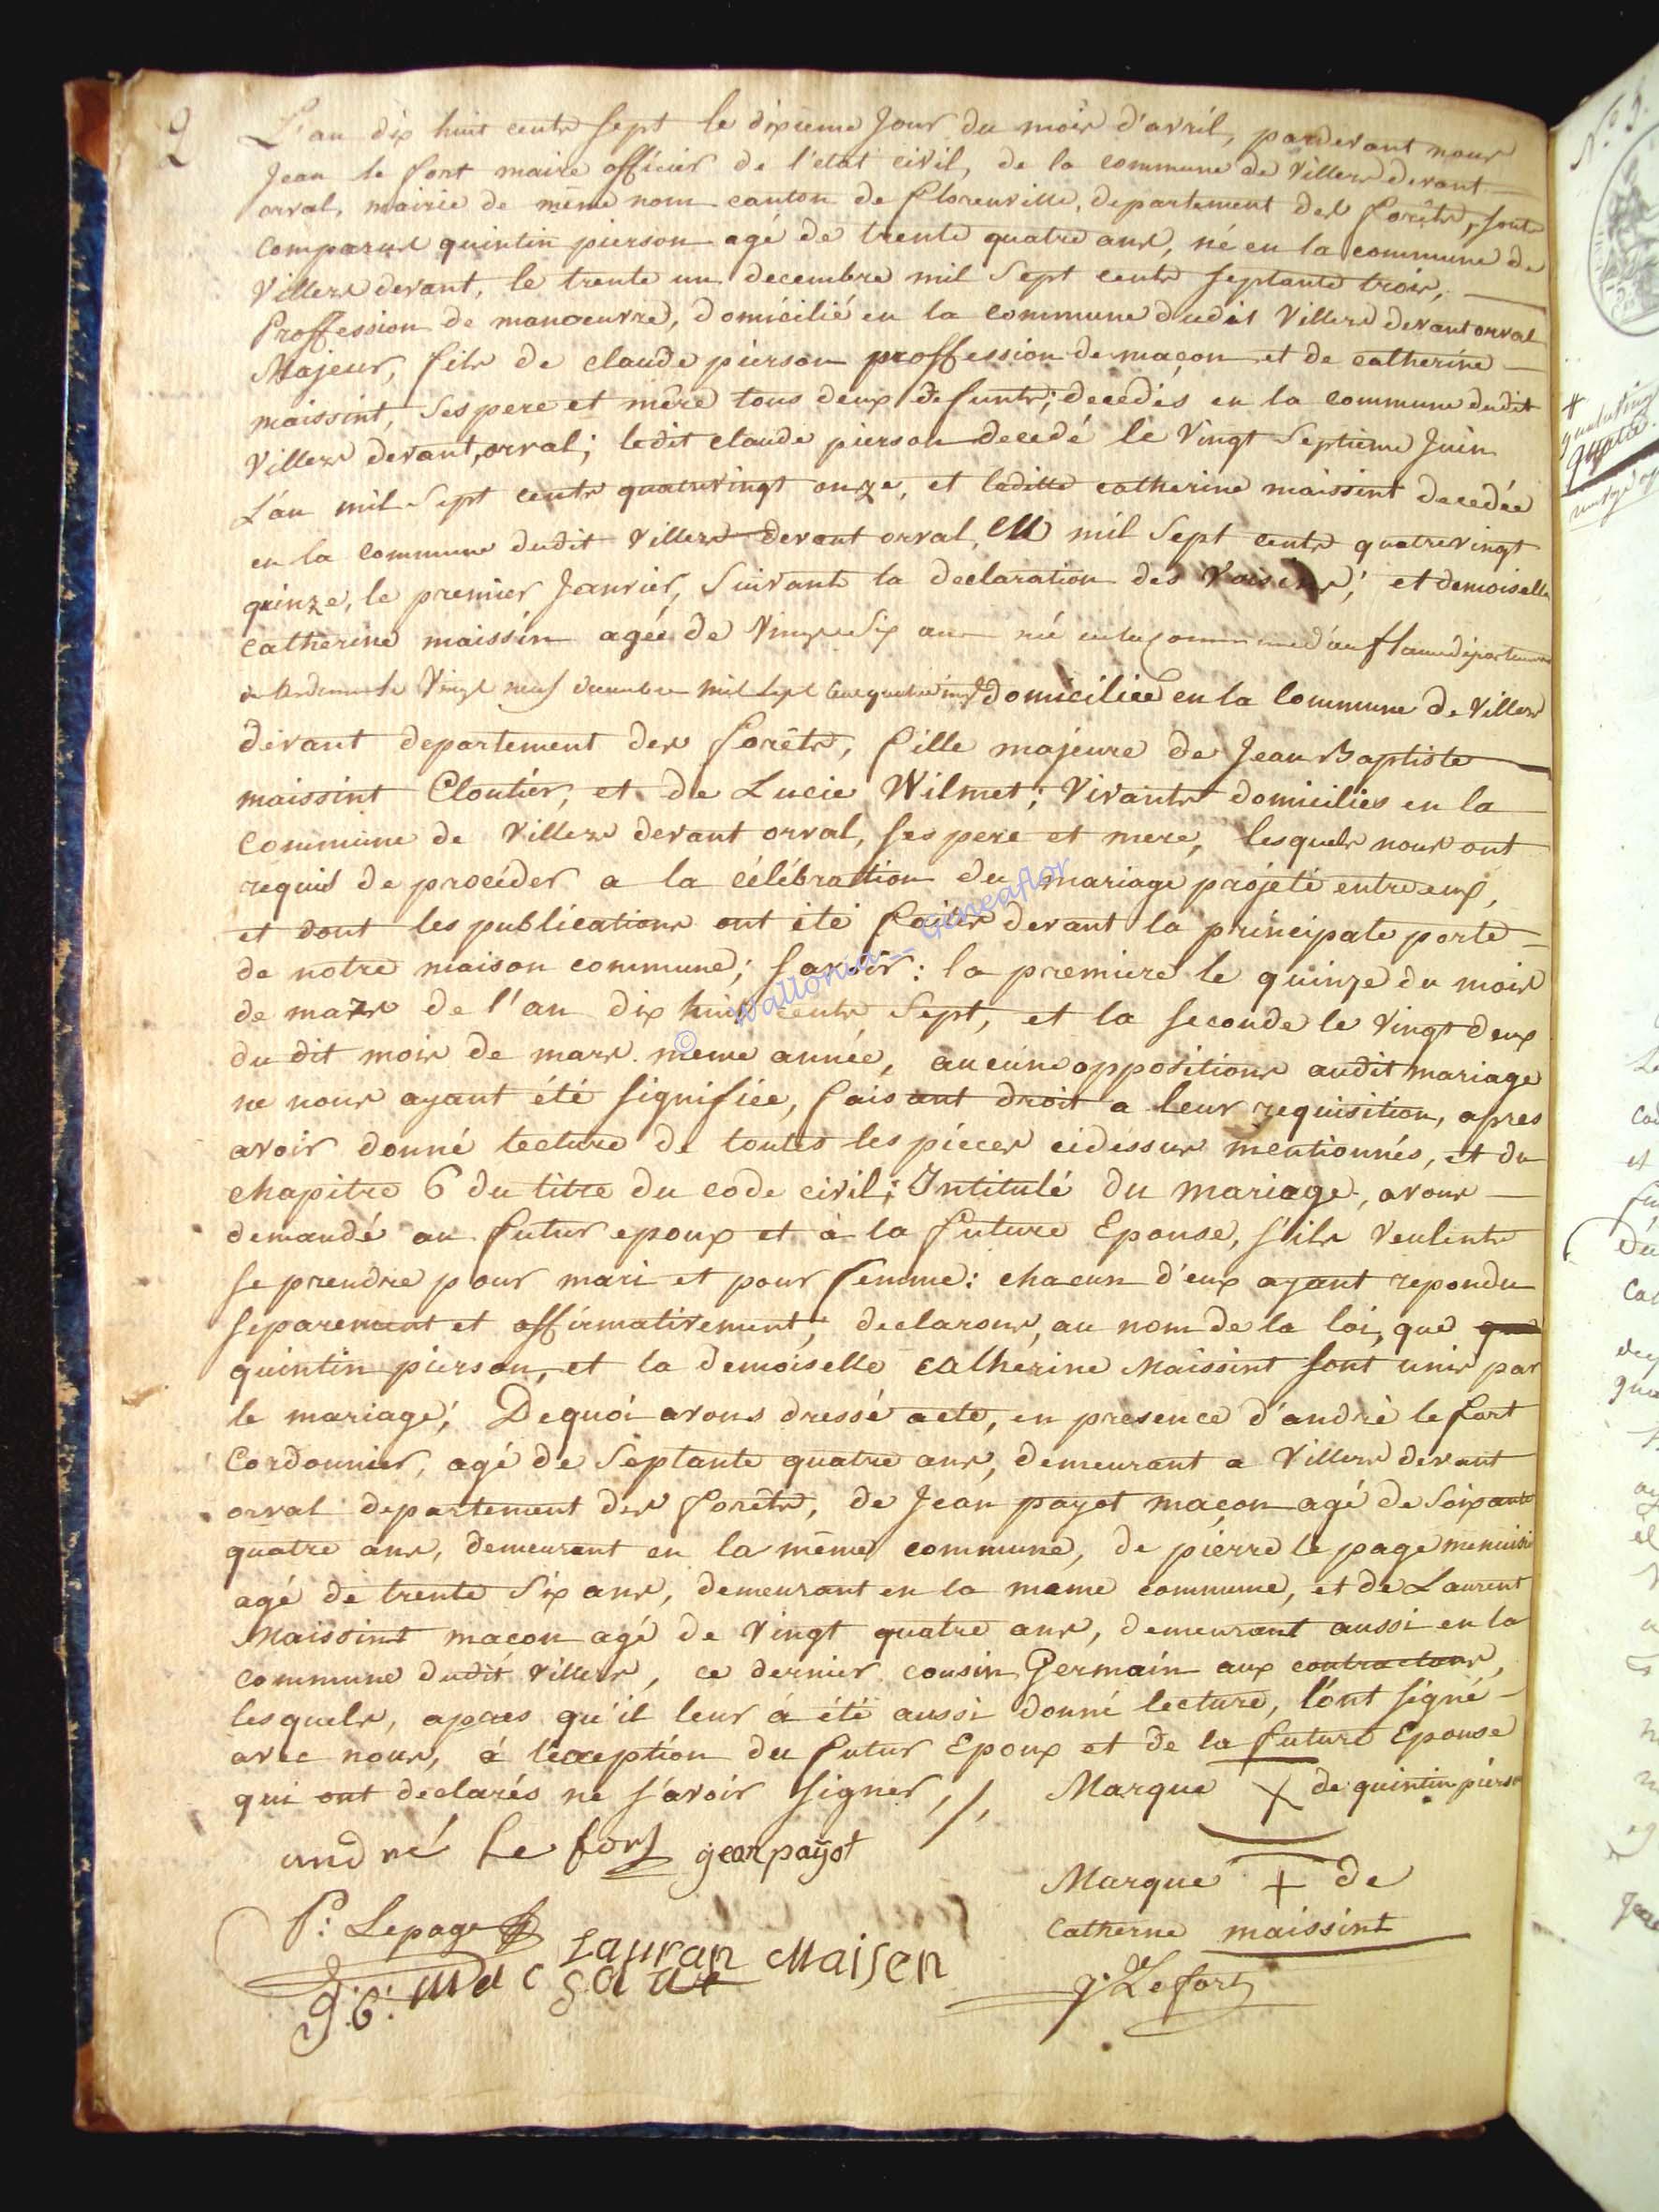 2
L'an dix huit cents sept le dixieme Jour du mois d'avril, pardevant nous
Jean le fort maire officier de l'etat civil, de la commune de Villers devant
orval, mairie de même nom canton de florenville, departement des forêts, sont
Comparus quintin pierson agé de trente quatre ans, né en la commune de
Villers devant, le trente un decembre mil Sept cents septante trois,
Proffession de manoeuvre, domicilié en la commune dudit Villers devant orval
Majeur, fils de claude pierson proffession de maçon et de catherine
maissint, Ses pere et mère tous deux defunts; decedés en la commune dudit
Villers devant, orval; ledit claude pierson decedé le Vingt Septieme Juin
L'an mil Sept cents quatrevingt onze, et laditte catherine maissint decedée
en la commune dudit Villers devant orval, mil Sept cents quatrevingt
quinze, le premier Janvier, Suivants la declaration des Voisins; et demoiselle
catherine maissin agée de Vingt Six ans né en la commune d'
Vingt neuf decembre mil Sept cent quatre vingt domiciliée en la Commune de Villers
devant departement des forêts, fille majeure de Jean Baptiste
maissint Cloutier, et de Lucie Wilmet; Vivants domiciliés en la
Commune de Villers devant orval, ses pere et mere, lesquels nous ont
requis de proceder a la célébrattion du mariage projeté entre eux,
et dont les publications ont été faites devant la principale porte
de notre maison commune; savoir: la premiere le quinze du mois
de mars de l'an dix huit cents Sept, et la seconde le Vingt deux
du dit mois de mars même année, aucune oppositions audit mariage
ne nous ayant été signifiée, faisant droit a leur requisition, apres
avoir donné lecture de toutes les pièces cidessus mentionnés, et du
chapitre 6 du titre du code civil; Intitulé du mariage, avons
demandé au futur epoux et à la future Epouse, s'ils veulents
se prendre pour mari et pour femme: chacun d'eux ayant repondu
separement et affirmativement, declarons, au nom de la loi, que que
quintin pierson, et la demoiselle catherine Maissint sont unis par
le mariage; Dequoi avons dressé acte, en presence d'andré le fort
Cordonnier, agé de Septante quatre ans, demeurant a Villers devant
orval departement des forêts, de Jean payot maçon agé de Soixante
quatre ans, demeurant en la même commune, de pierre le page menuisi
agé de trente Six ans, demeurant en la meme commune, et de Laurent
Maissint macon agé de Vingt quatre ans, demeurant aussi en la
Commune dudit Villers, ce dernier cousin Germain aux contractans,
lesquels, apres qu'il leur à été aussi donné lecture, l'ont signé
avec nous, à l'exception du futur Epoux et de la future Epouse
qui ont declarés ne s'avoir signer, //, Marque X de quintin pierson
andré le fort jean payot
Marque + de
Catherine maissint
P: Lepage
Lauran Maisen
J: Lefort
© Wallonia - Geneaflor